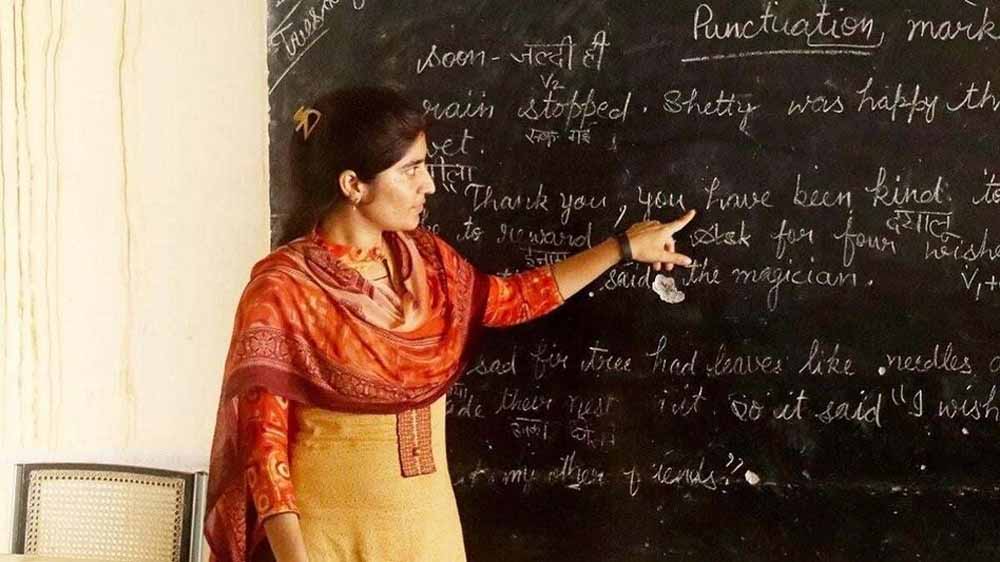 Punctuation, mark
soon - जल्दी ही
V2
rain stopped. Shetty was happy th
रूक गई
wet.
"Thank you, you have been kind to
दयालु
to reward Ask for four wishe
इनाम
said the magician. V1+
sad fir tree had leaves like needles
their nest in it. So it said "I wish
उनका
my other friends?"